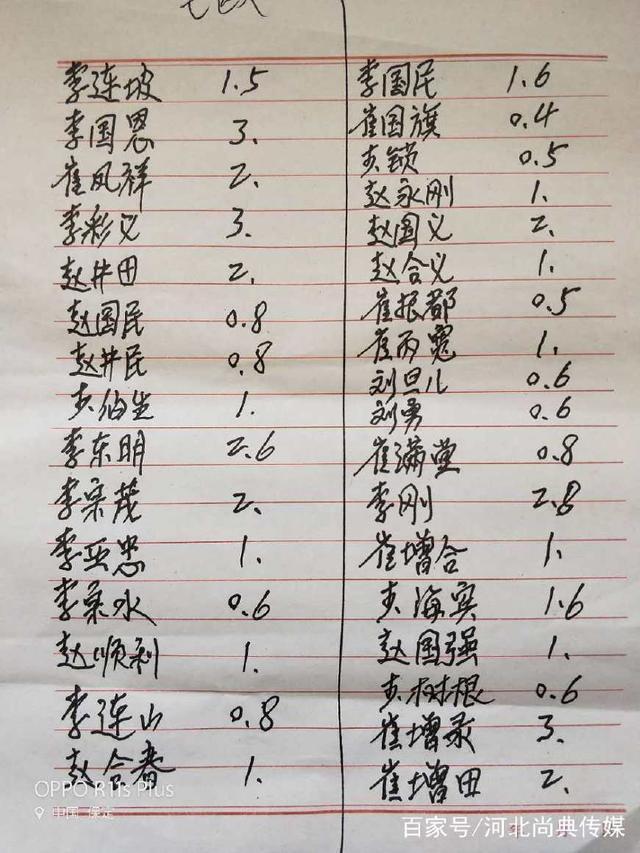 李连坡 1.5
李国恩 3.
崔凤祥 2.
李彩义 3.
赵井田 2.
赵国民 0.8
赵井民 0.8
史伯生 1.
李东明 2.6
李荣茂 2.
李亚忠 1.
李荣水 0.6
赵顺利 1.
李连山 0.8
赵合春 1.
李国民 1.6
崔国旗 0.4
史锁 0.5
赵永刚 1.
赵国义 2.
赵合义 1.
崔振都 0.5
崔丙寬 1.
刘旦儿 0.6
刘勇 0.6
崔满堂 0.8
李刚 2.8
崔增合 1.
史海宾 1.6
赵国强 1.
史树根 0.6
崔增录 3.
崔增田 2.
OPPO R11s Plus
中国·保定
百家号/河北尚典传媒